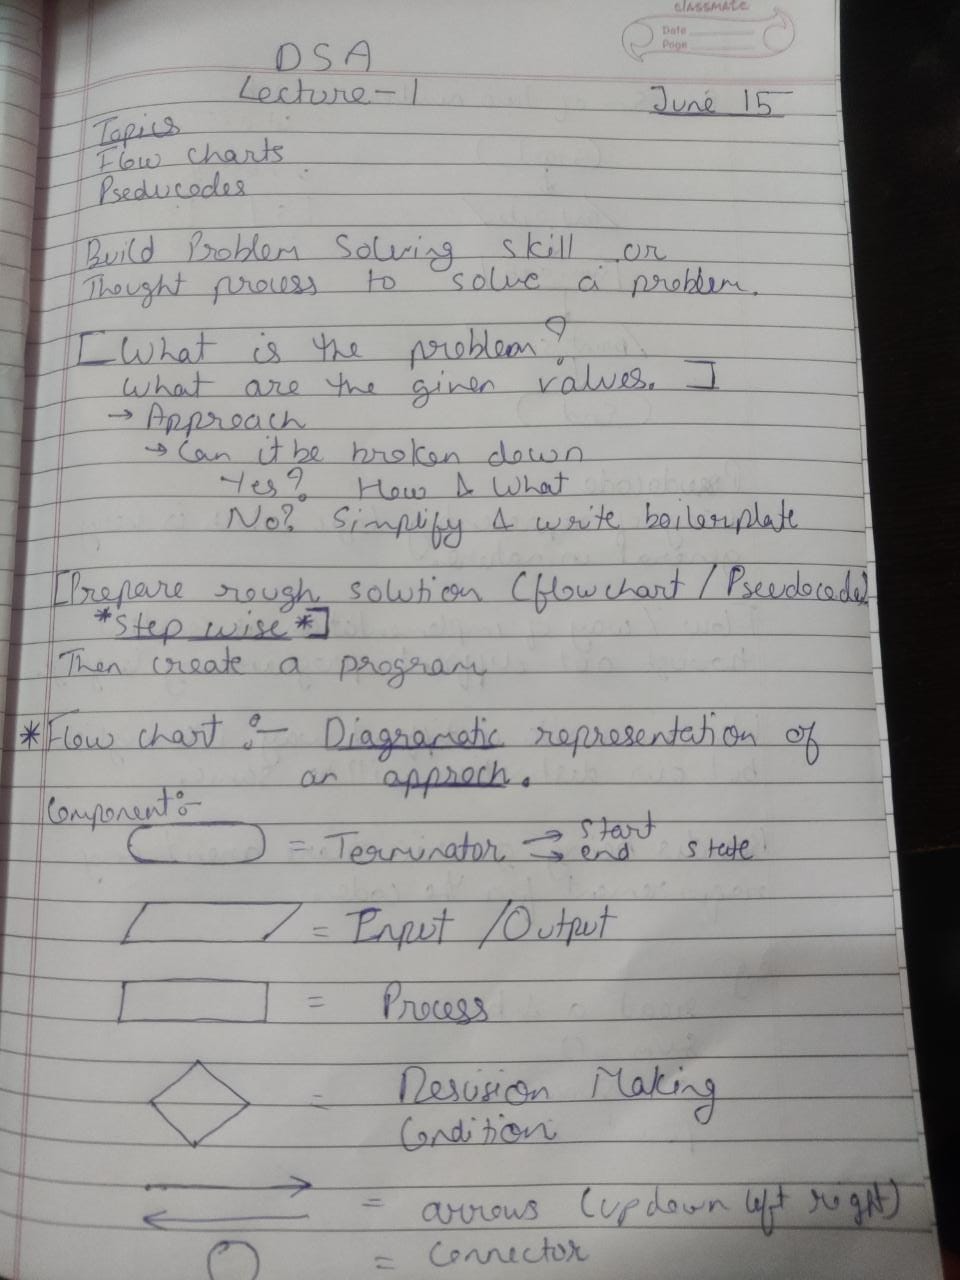 classmate
Date
Page
DSA
Lecture-1
June 15
Topics
Flow charts
Pseducodes
Build Problem Solving skill or
Thought process to solve a problem.
[What is the problem?
What are the given values.]
→ Approach
→ Can it be broken down
Yes? How & What
No? Simplify & write boilerplate
[Prepare rough solution (flowchart / Pseudocode)
*Step wise*]
Then create a program
*Flow chart :- Diagramatic representation of
an approch.
Component:-
= Terminator → start
→ end state
= Input / Output
= Process
= Descision Making
Condition
= arrows (up down left right)
= Connector